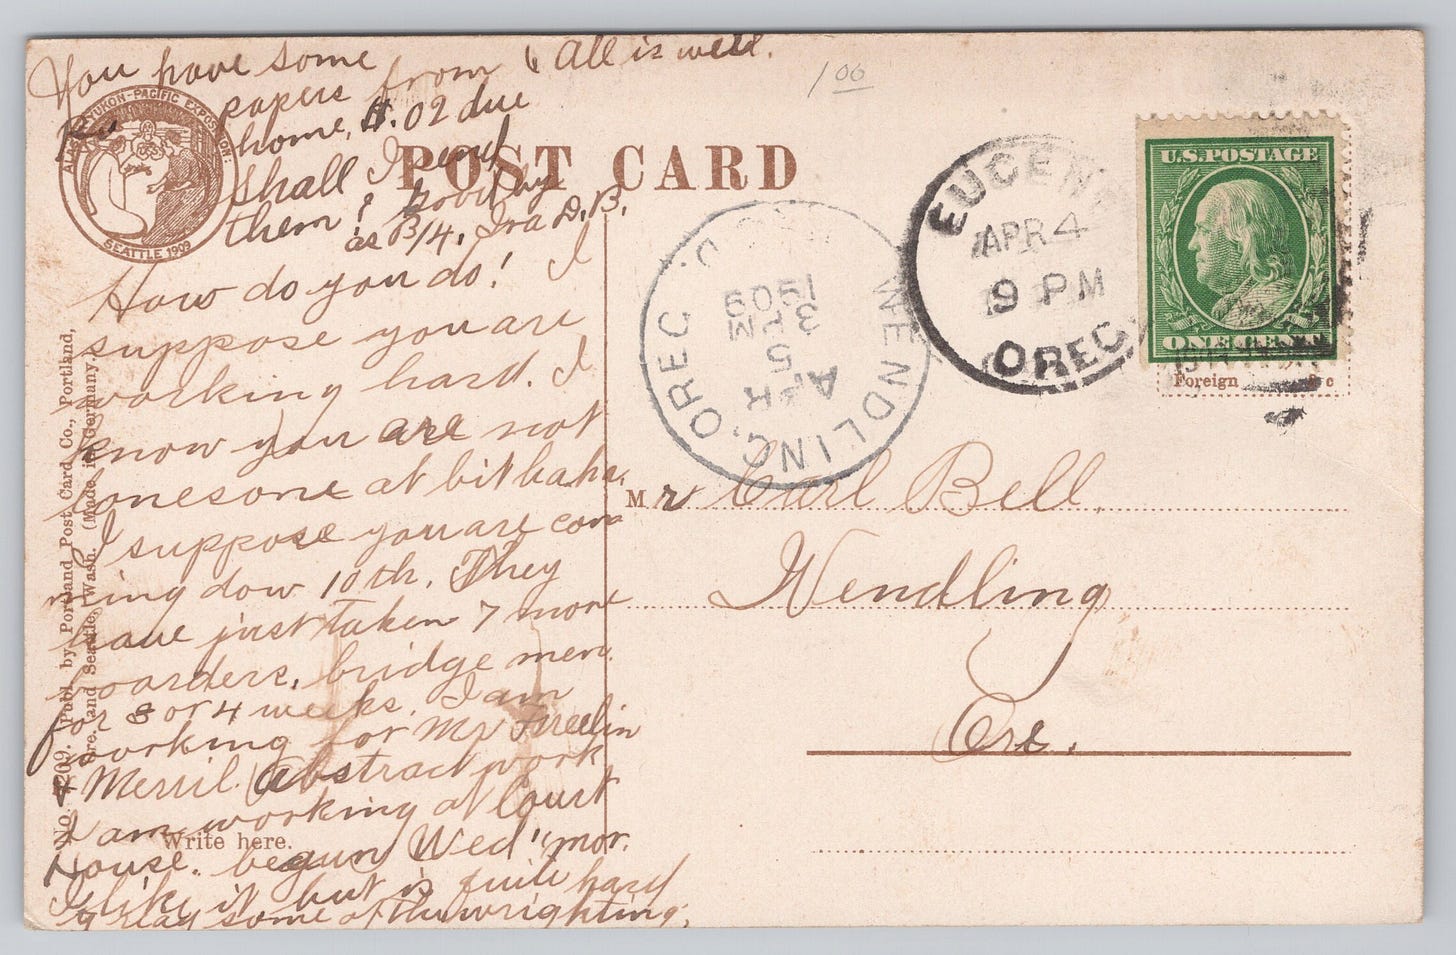 You have some
papers from
home, .02 due
Shall I send
them? Good by
as B/4, Ira D. B.
All is well.
100
ALASKA-YUKON-PACIFIC EXPOSITION
SEATTLE 1909
POST CARD
How do you do! I
suppose you are
working hard. I
know you are not
lonesome at bit haha.
I suppose you are com
ming dow 10th. They
have just taken 7 more
boarders, bridge men
for 3 or 4 weeks. I am
working for Mr
Merril. Abstract work
I am working at Court
House. begun Wed" mor.
I like it but is quite hard
to read some of the wrighting.
Write here.
No. 4209. Publ. by Portland Post Card Co., Portland,
Ore. and Seattle, Wash. (Made in Germany.)
WENDLING, OREG.
APR
5
3 PM
1909
EUGENE
APR 4
9 PM
OREG.
U.S. POSTAGE
ONE CENT
Foreign
Mr Carl Bell.
Wendling
Ore.